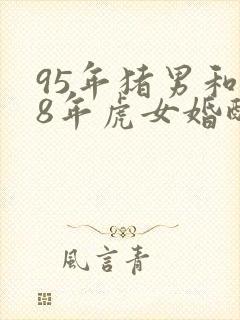 95年猪男和
8年虎女婚
風言青